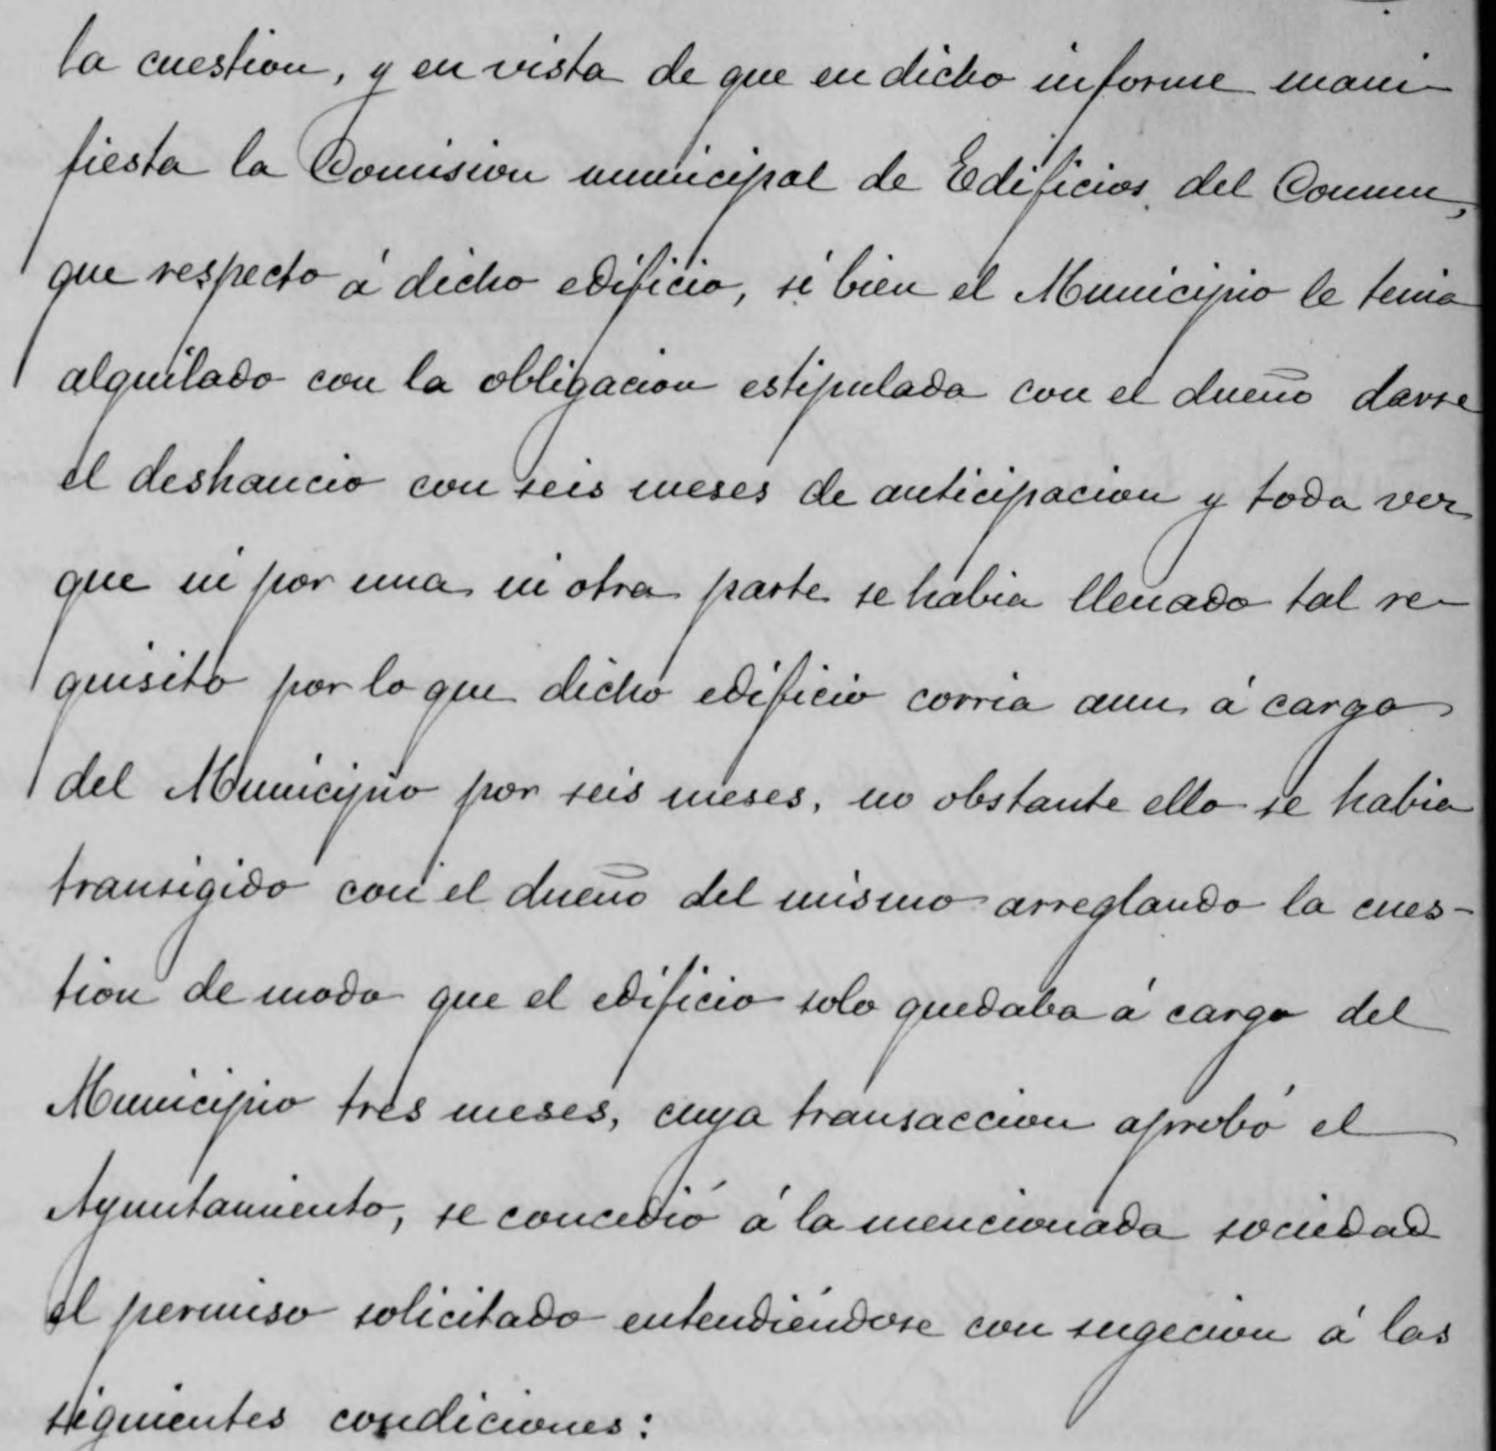 la cuestion, y en vista de que en dicho informe mani-
fiesta la Comision municipal de Edificios del Comun,
que respecto á dicho edificio, si bien el Municipio le tenia
alquilado con la obligacion estipulada con el dueño darse
el deshaucio con seis meses de anticipacion y toda vez
que ni por una ni otra parte se habia llenado tal re-
quisito por lo que dicho edificio corria aun á cargo
del Municipio por seis meses, no obstante ello se habia
transigido con el dueño del mismo arreglando la cues-
tion de modo que el edificio solo quedaba á cargo del
Municipio tres meses, cuya transaccion aprobó el
Ayuntamiento, se concedió á la mencionada sociedad
el permiso solicitado entendiéndose con sugecion á las
siguientes condiciones: